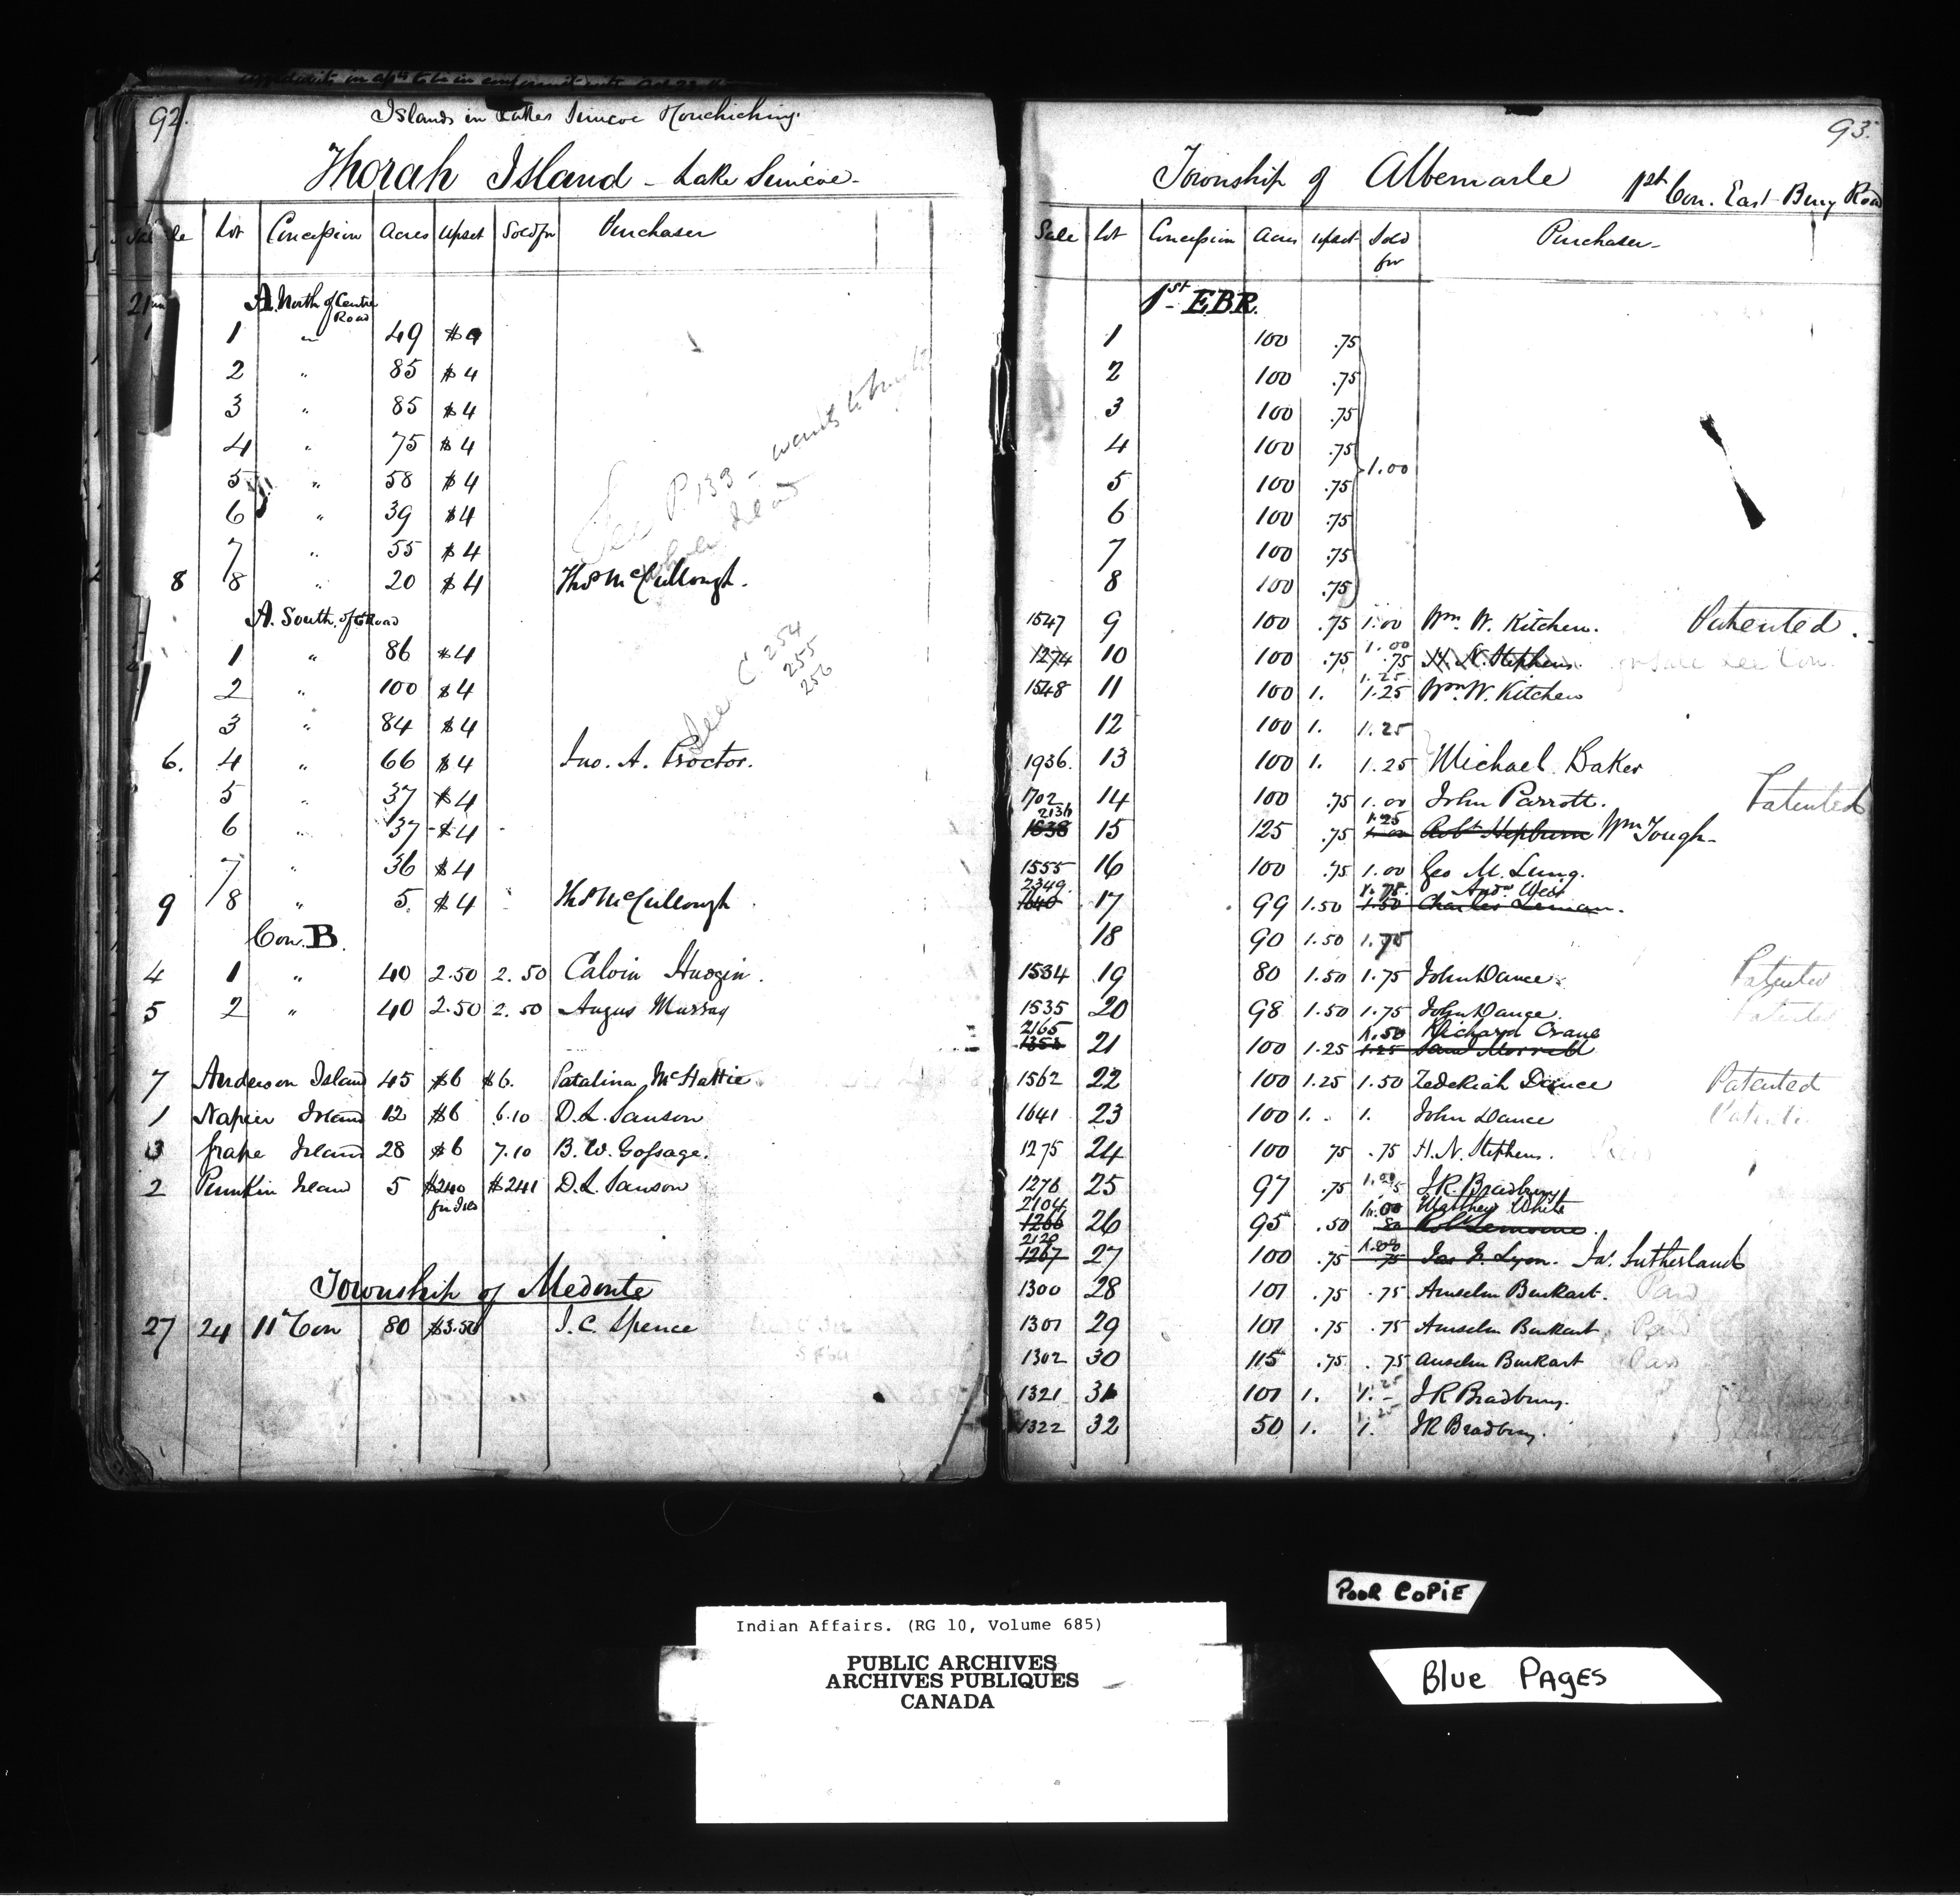 92.
Islands in Lakes Simcoe
Thorah Island - Lake Simcoe -
Sale Lot Concession Acres Upset Sold for Purchaser
A. North of Centre Road
1 " 49 $4
2 " 85 $4
3 " 85 $4
4 " 75 $4
5 " 58 $4
6 " 39 $4
7 " 55 $4
8 8 " 20 $4 Thos McCullough.
See P. 133 - wants to buy
A. South. of Ct Road
1 " 86 $4
2 " 100 $4
3 " 84 $4
See C. 254
255
256
6. 4 " 66 $4 Jno. A. Proctor.
5 " 37 $4
6 " 37 $4
7 " 36 $4
9 8 " 5 $4 Thos McCullough
Con. B.
4 1 " 40 2.50 2.50 Calvin
5 2 " 40 2.50 2.50 Angus Murray
7 Anderson Island 45 $6 $6. Catalina McHattie
1 Napier Island 12 $6 6.10 D. L. Sanson
3 Grape Island 28 $6 7.10 B. W. Gossage.
2 Pumkin Island 5 $240 $241 D. L. Sanson
Township of Medonte
27 24 11th Con 80 $3.50 J. C. Spence
93.
Township of Albemarle 1st Con. East Bury Road
Sale Lot Concession Acres Upset Sold for Purchaser -
1st EBR.
1 100 .75
2 100 .75
3 100 .75
4 100 .75
1.00
5 100 .75
6 100 .75
7 100 .75
8 100 .75
1547 9 100 .75 1.00 Wm. W. Kitchen. Patented.
1.00
1274 10 100 .75 .75 H. N. Stephens.
1.25
1548 11 100 1. 1.25 Wm. W. Kitchen
12 100 1. 1.25
1936. 13 100 1. 1.25 Michael Baker
1702 14 100 .75 1.00 John Parrott. Patented
2136 1.25
1638 15 125 .75 1.00 Robt Hepburn Wm Tough -
1555 16 100 .75 1.00 Geo M. Lung.
2349. 1.75 Andw Weir
1640 17 99 1.50 1.50 Charles Leman.
18 90 1.50 1.75
1534 19 80 1.50 1.75 John Dance. Patented
1535 20 98 1.50 1.75 John Dance. Patented
2165 1.50 Richard Crane
21 100 1.25 1.25 Saml Morrell
1562 22 100 1.25 1.50 Zedekiah Dance Patented
1641 23 100 1. 1. John Dance
1275 24 100 75 .75 H. N. Stephens.
1276 25 97 .75 J R. Bradbury
2104 1.00 Matthew White
1266 26 95 .50 80 Robt Lemoine
2129 1.00
1267 27 100 .75 75 Jas. Lyon. Js. Sutherland
1300 28 101 .75 .75 Anselm Burkart. Paid
1301 29 101 .75 .75 Anselm Burkart. Paid
1302 30 115 .75 .75 Anselm Burkart Paid
1.25
1321 31 101 1. 1. J R Bradbury.
1.25
1322 32 50 1. 1. J R Bradbury.
POOR COPIE
Blue PAGES
Indian Affairs. (RG 10, Volume 685)
PUBLIC ARCHIVES
ARCHIVES PUBLIQUES
CANADA